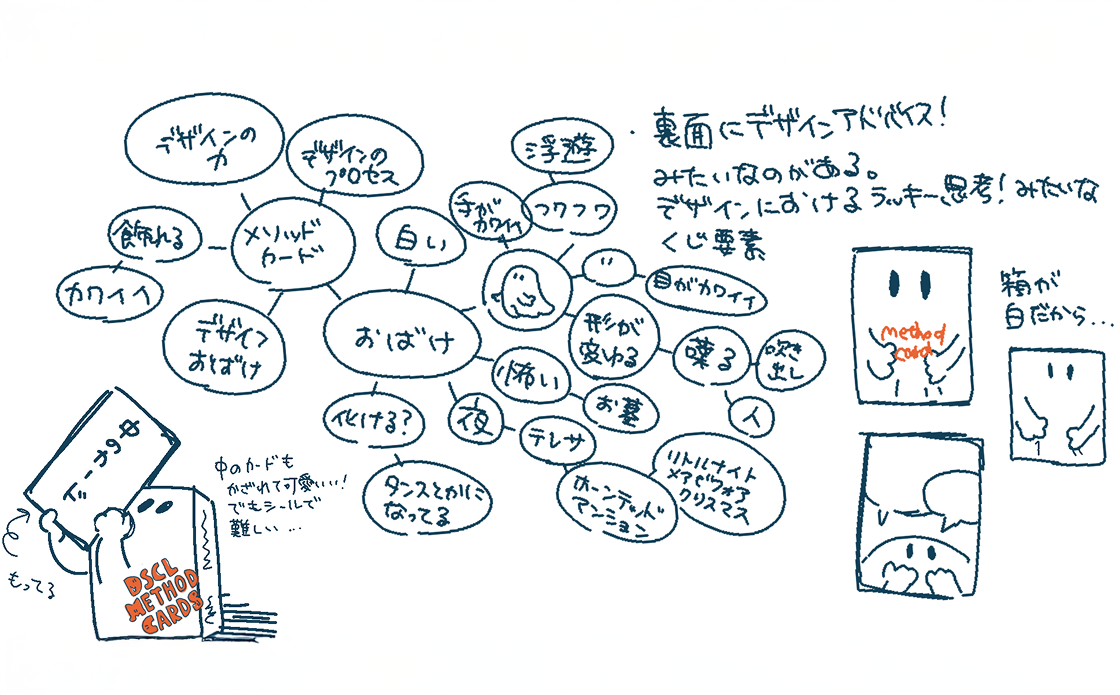 デザインの
力
デザインの
プロセス
飾れる
メソッド
カード
カワイイ
デザイン
おばけ
白い
おばけ
浮遊
フワフワ
手が
カワイイ
目がカワイイ
形が
変わる
喋る
吹き
出し
人
怖い
お墓
化ける?
夜
テレサ
タンスとかに
なってる
ホーンテッド
マンション
リトルナイト
メアビフォア
クリスマス
・裏面にデザインアドバイス!
みたいなのがある。
デザインにおけるラッキー思考!みたいな
くじ要素
method
card
箱が
白だから...
中のカード
中のカードも
かざれて可愛いい!
でもシールで
難しい...
もってる
DSCL
METHOD
CARDS